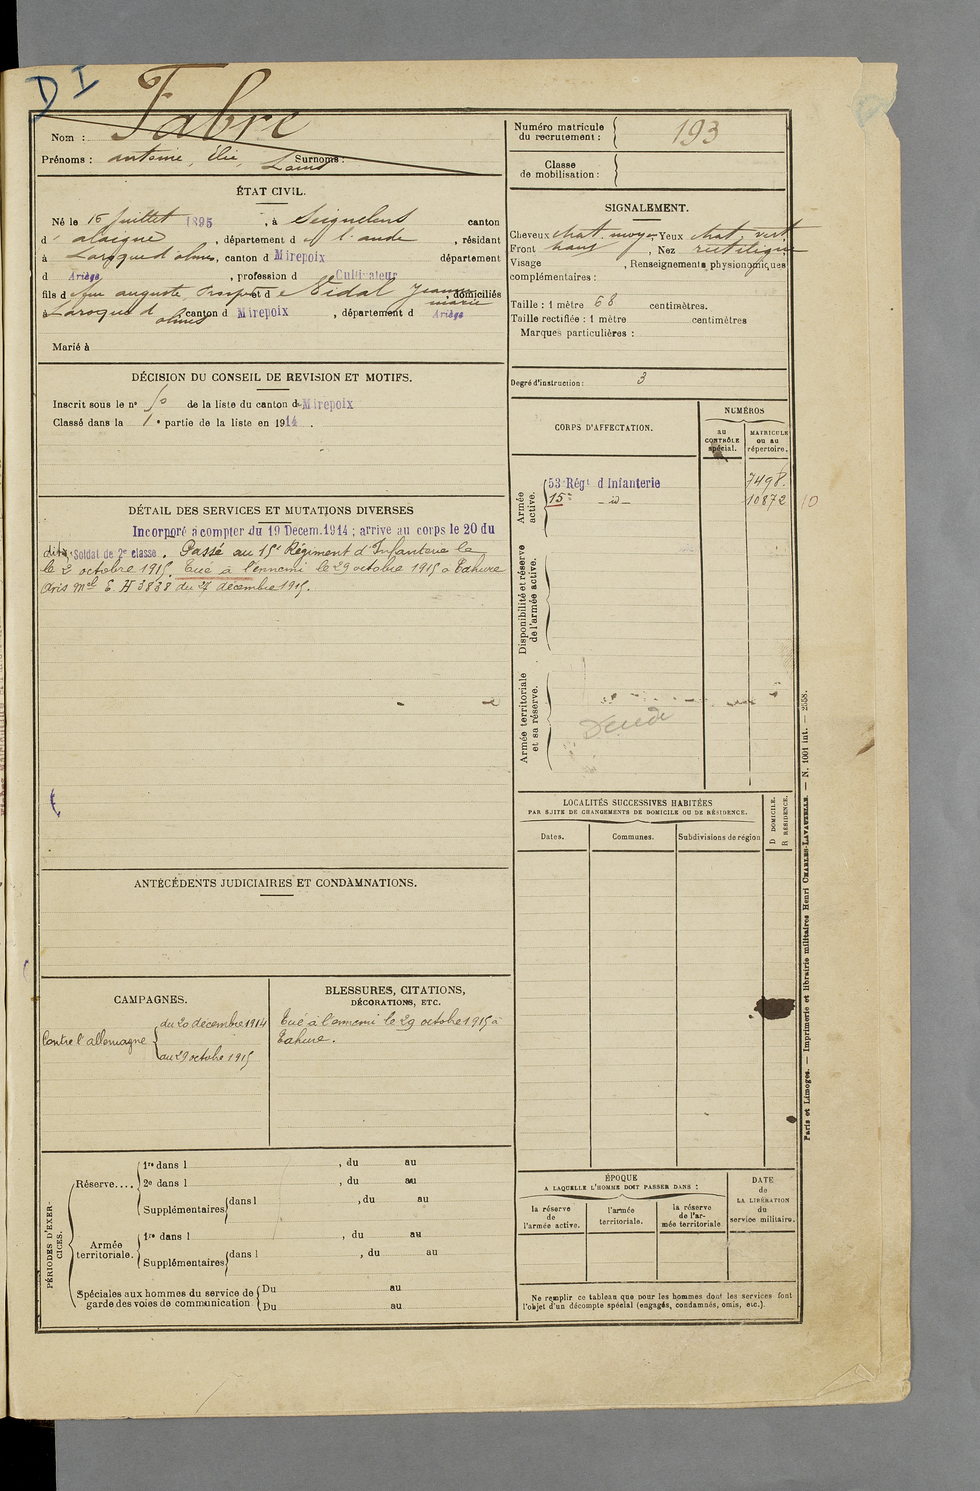 D I
Nom : Fabre
Prénoms : antoine, élie, Louis Surnoms :
ÉTAT CIVIL.
Né le 15 Juillet 1895, à Seignelens canton
d'alaigne, département de l'aude, résidant
à Laroque d'olmes, canton d Mirepoix département
d Ariège, profession d Cultivateur
fils d feu auguste, Prosper et de Vidal Jeanne marie, domiciliés
à Laroque d'olmes canton d Mirepoix, département d Ariège
Marié à
DÉCISION DU CONSEIL DE REVISION ET MOTIFS.
Inscrit sous le n° 50 de la liste du canton de Mirepoix
Classé dans la 1e partie de la liste en 1914.
DÉTAIL DES SERVICES ET MUTATIONS DIVERSES
Incorporé à compter du 19 Décem. 1914 ; arrivé au corps le 20 du
dit, Soldat de 2e classe. Passé au 15e Régiment d'Infanterie le
le 2 octobre 1915. Tué à l'ennemi le 29 octobre 1915 à Tahure
avis mel E. H 3838 du 27 décembre 1915.
ANTÉCÉDENTS JUDICIAIRES ET CONDAMNATIONS.
CAMPAGNES.
Contre l'allemagne
du 20 décembre 1914
au 29 octobre 1915
BLESSURES, CITATIONS,
DÉCORATIONS, ETC.
Tué à l'ennemi le 29 octobre 1915 à
Tahure.
PÉRIODES D'EXERCICES.
Réserve....
1re dans l , du au
2e dans l , du au
Supplémentaires dans l , du au
Armée territoriale.
1re dans l , du au
Supplémentaires dans l , du au
Spéciales aux hommes du service de garde des voies de communication
Du au
Du au
Numéro matricule du recrutement : 193
Classe de mobilisation :
SIGNALEMENT.
Cheveux chat. moyen, Yeux chat. vert
Front haut, Nez rectiligne
Visage , Renseignements physionomiques
complémentaires :
Taille : 1 mètre 68 centimètres.
Taille rectifiée : 1 mètre centimètres
Marques particulières :
Degré d'instruction : 3
CORPS D'AFFECTATION.
NUMÉROS
au CONTRÔLE spécial.
MATRICULE ou au répertoire.
Armée active.
53e Régt d'Infanterie 7498.
15e - id - 10872 10
Disponibilité et réserve de l'armée active.
Armée territoriale et sa réserve.
LOCALITÉS SUCCESSIVES HABITÉES
PAR SUITE DE CHANGEMENTS DE DOMICILE OU DE RÉSIDENCE.
Dates. Communes. Subdivisions de région
D DOMICILE.
R RÉSIDENCE.
ÉPOQUE
A LAQUELLE L'HOMME DOIT PASSER DANS :
la réserve de l'armée active.
l'armée territoriale.
la réserve de l'armée territoriale
DATE de LA LIBÉRATION du service militaire.
Ne remplir ce tableau que pour les hommes dont les services font
l'objet d'un décompte spécial (engagés, condamnés, omis, etc.).
Paris et Limoges. — Imprimerie et librairie militaires Henri CHARLES-LAVAUZELLE. — N. 1001 int. — 2558.